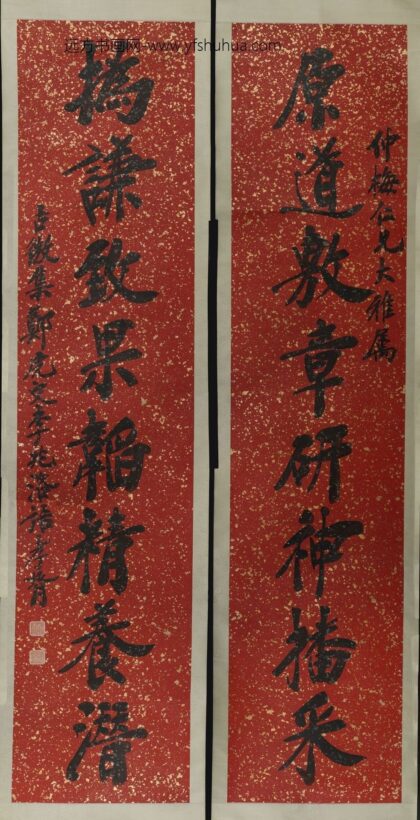 远方书画网-www.yfshuhua.com
仲梅仁兄大雅属
原道敷章研神播采
撝謙致果韜精養潛
古微集鄭虎文李兆洛語孝胥